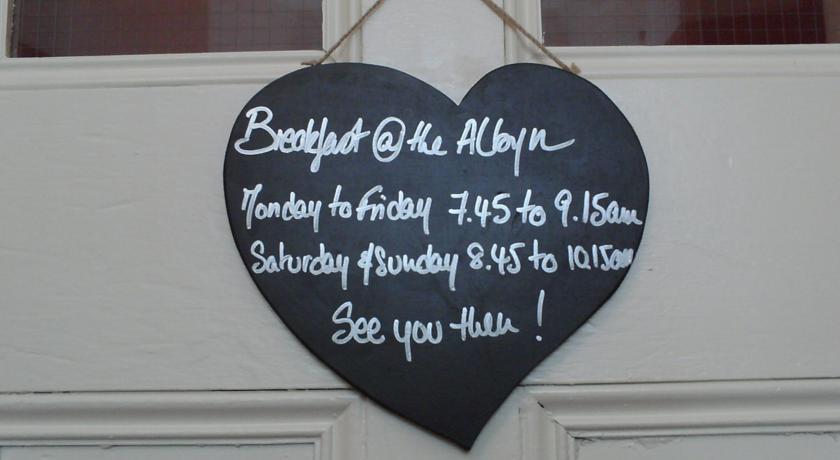 Breakfast @ the Albyn
Monday to Friday 7.45 to 9.15am
Saturday & Sunday 8.45 to 10.15am
See you then !